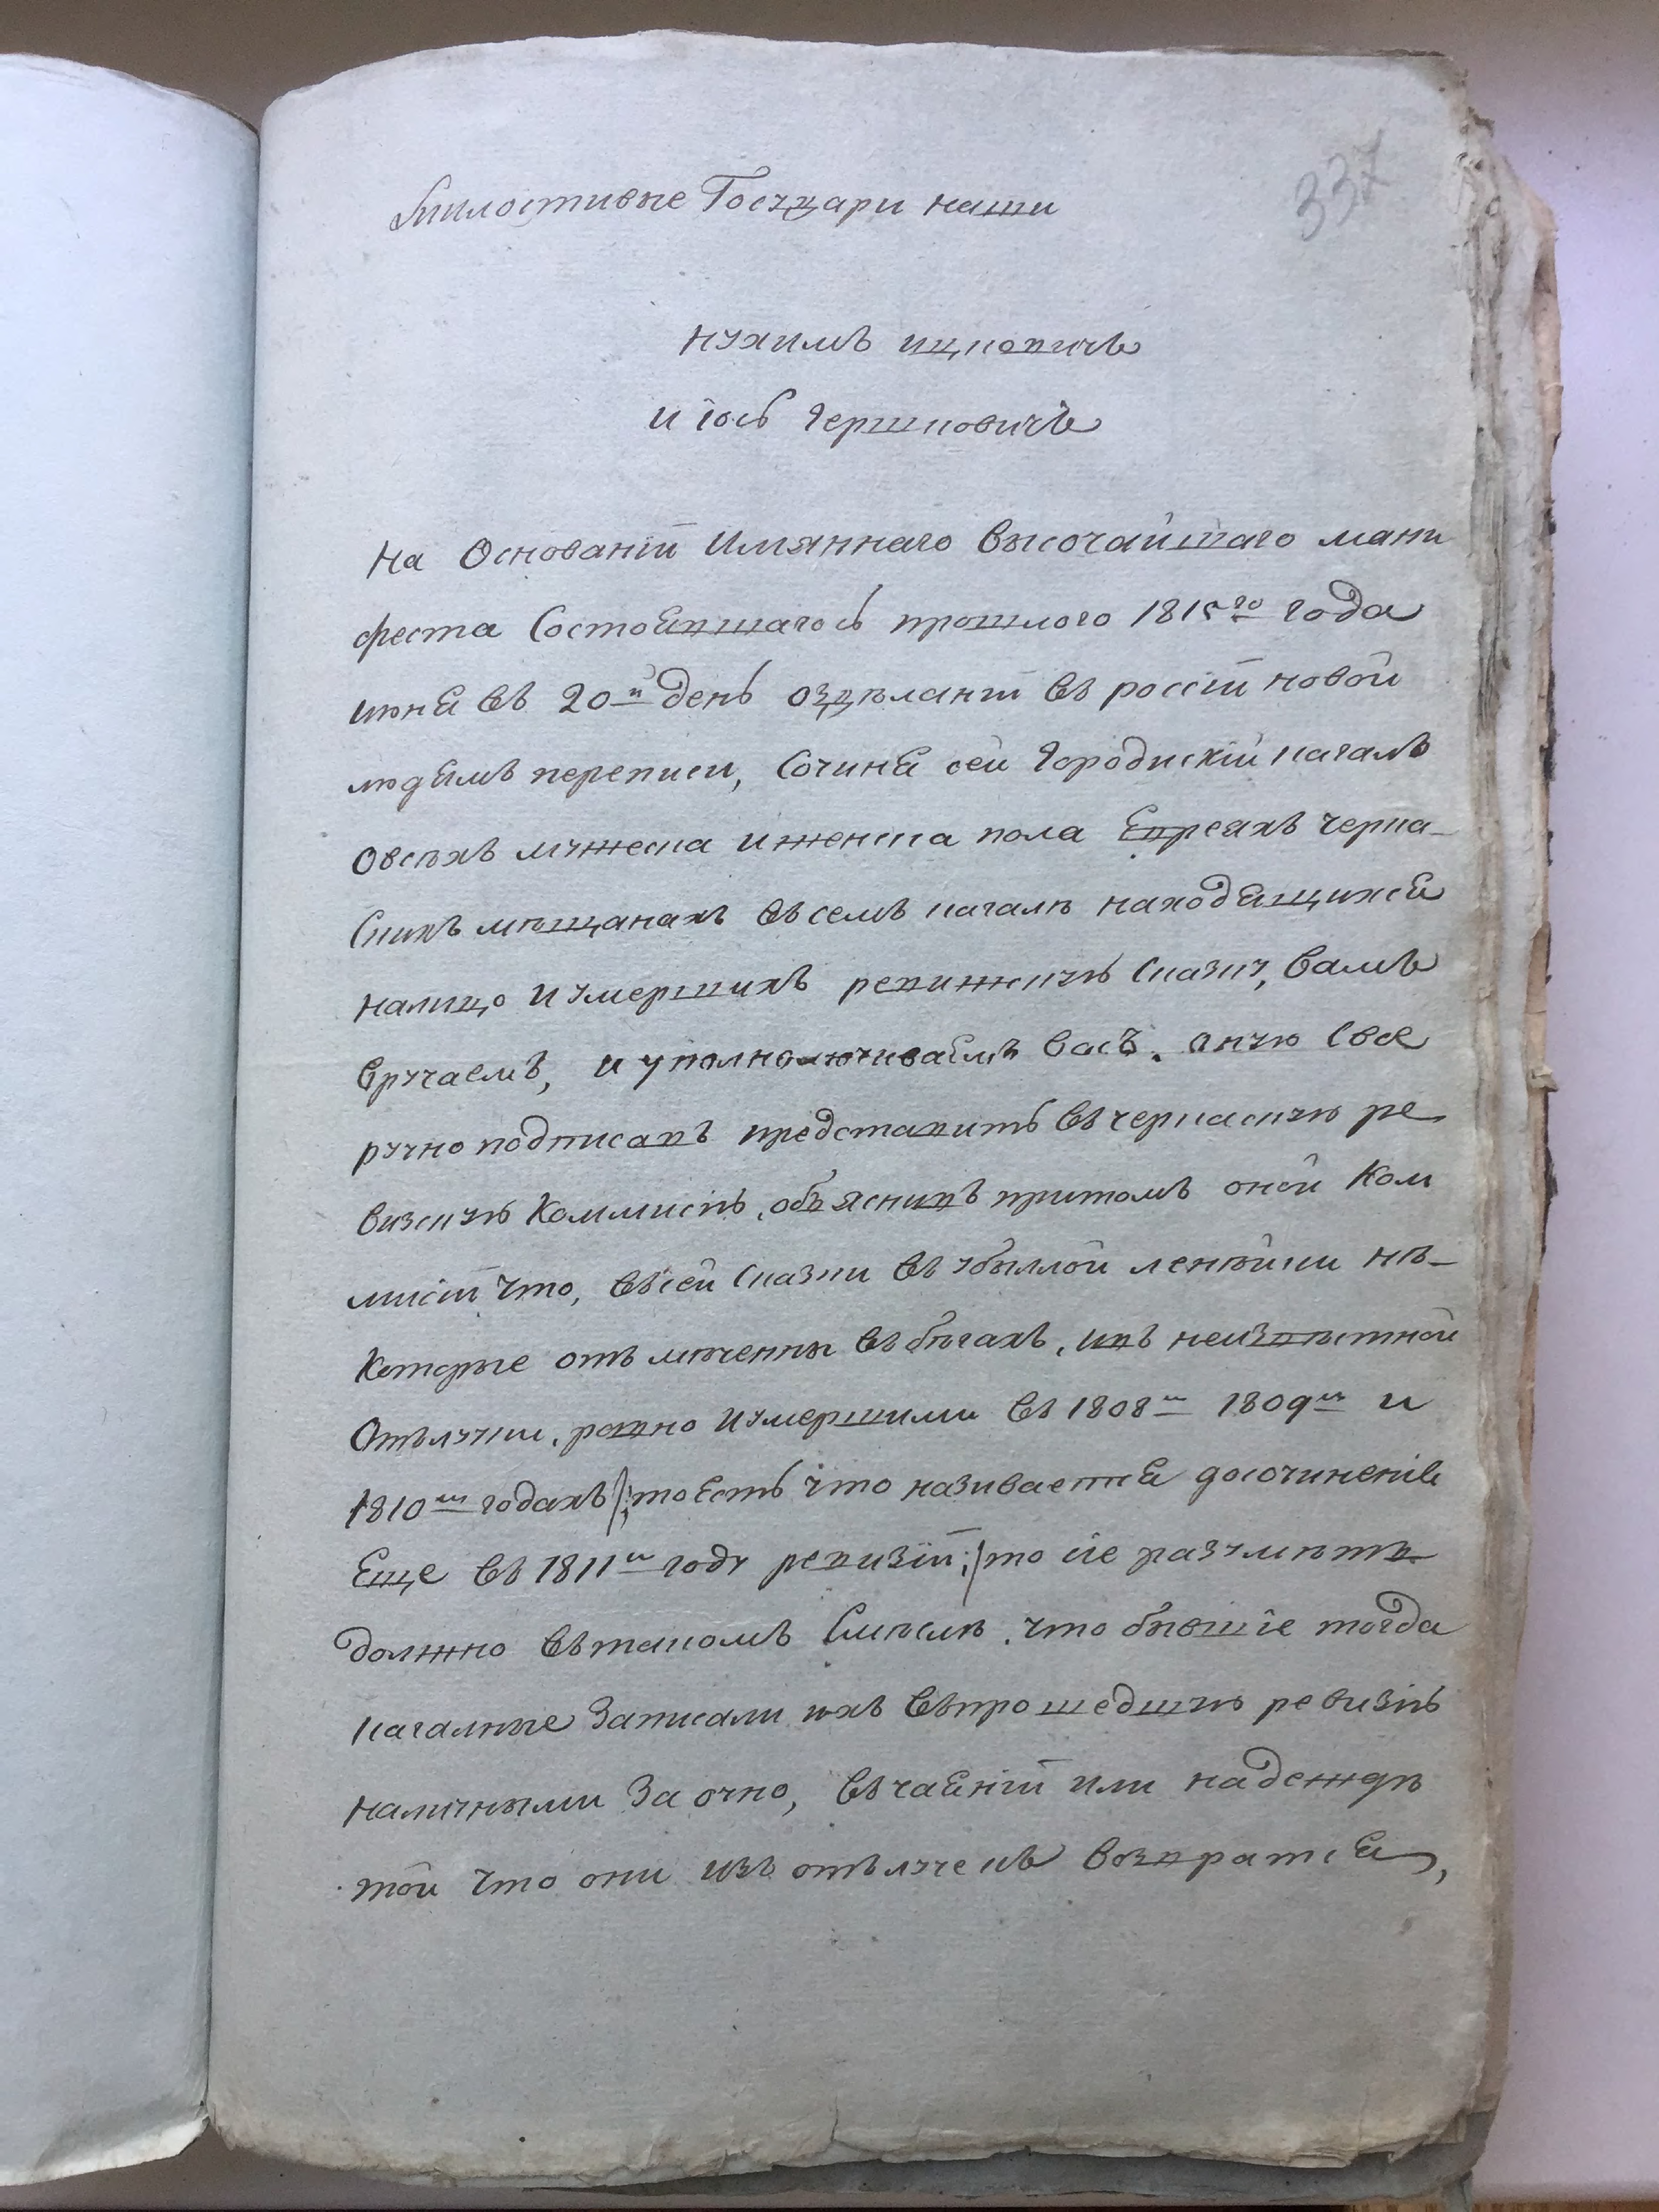 337
Милостивые Государи наши
Нухимъ Ицковичъ
и Іось Гершковичъ
На Основаніи Имяннаго Высочайшаго мани
феста Состоявшагось прошлого 1815го года
июня въ 20й день оздѣланіи въ россіи новой
людямъ переписи, Сочиня сей Городискій кагалъ
Овсѣхъ мужеска и женска пола Евреяхъ черка-
Скихъ мѣщанахъ въ семъ кагалѣ находящихся
налицо и умершихъ ревижскую Сказку, Вамъ
Вручаемъ, и уполномочиваемъ Васъ. оную Свое
ручно подписавъ представить въ черкаскую ре
визскую Коммисію, объяснивъ притомъ оной Ком
мисіи что, въсей Сказки въ убылой нѣ-
Которые отъмѣченны въ бѣгахъ, ивъ неизвѣстной
Отълучки, равно и умершими въ 1808м 1809м и
1810м годахъ /: тоесть что називается досочиненіе
Еще въ 1811м году ревизіи :/ то сіе разумѣть
должно вътакомъ Смыслѣ, что бывшіе тогда
кагалные Записали ихъ въпрошедшую ревизію
наличными За очно, въчаяніи или надеждѣ
той что они изъ отълучекъ Возвратся,